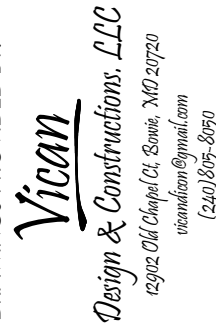 Vican
Design & Constructions, LLC
12902 Old Chapel Ct, Bowie, MD 20720
vicandicon@gmail.com
(240)805-8050